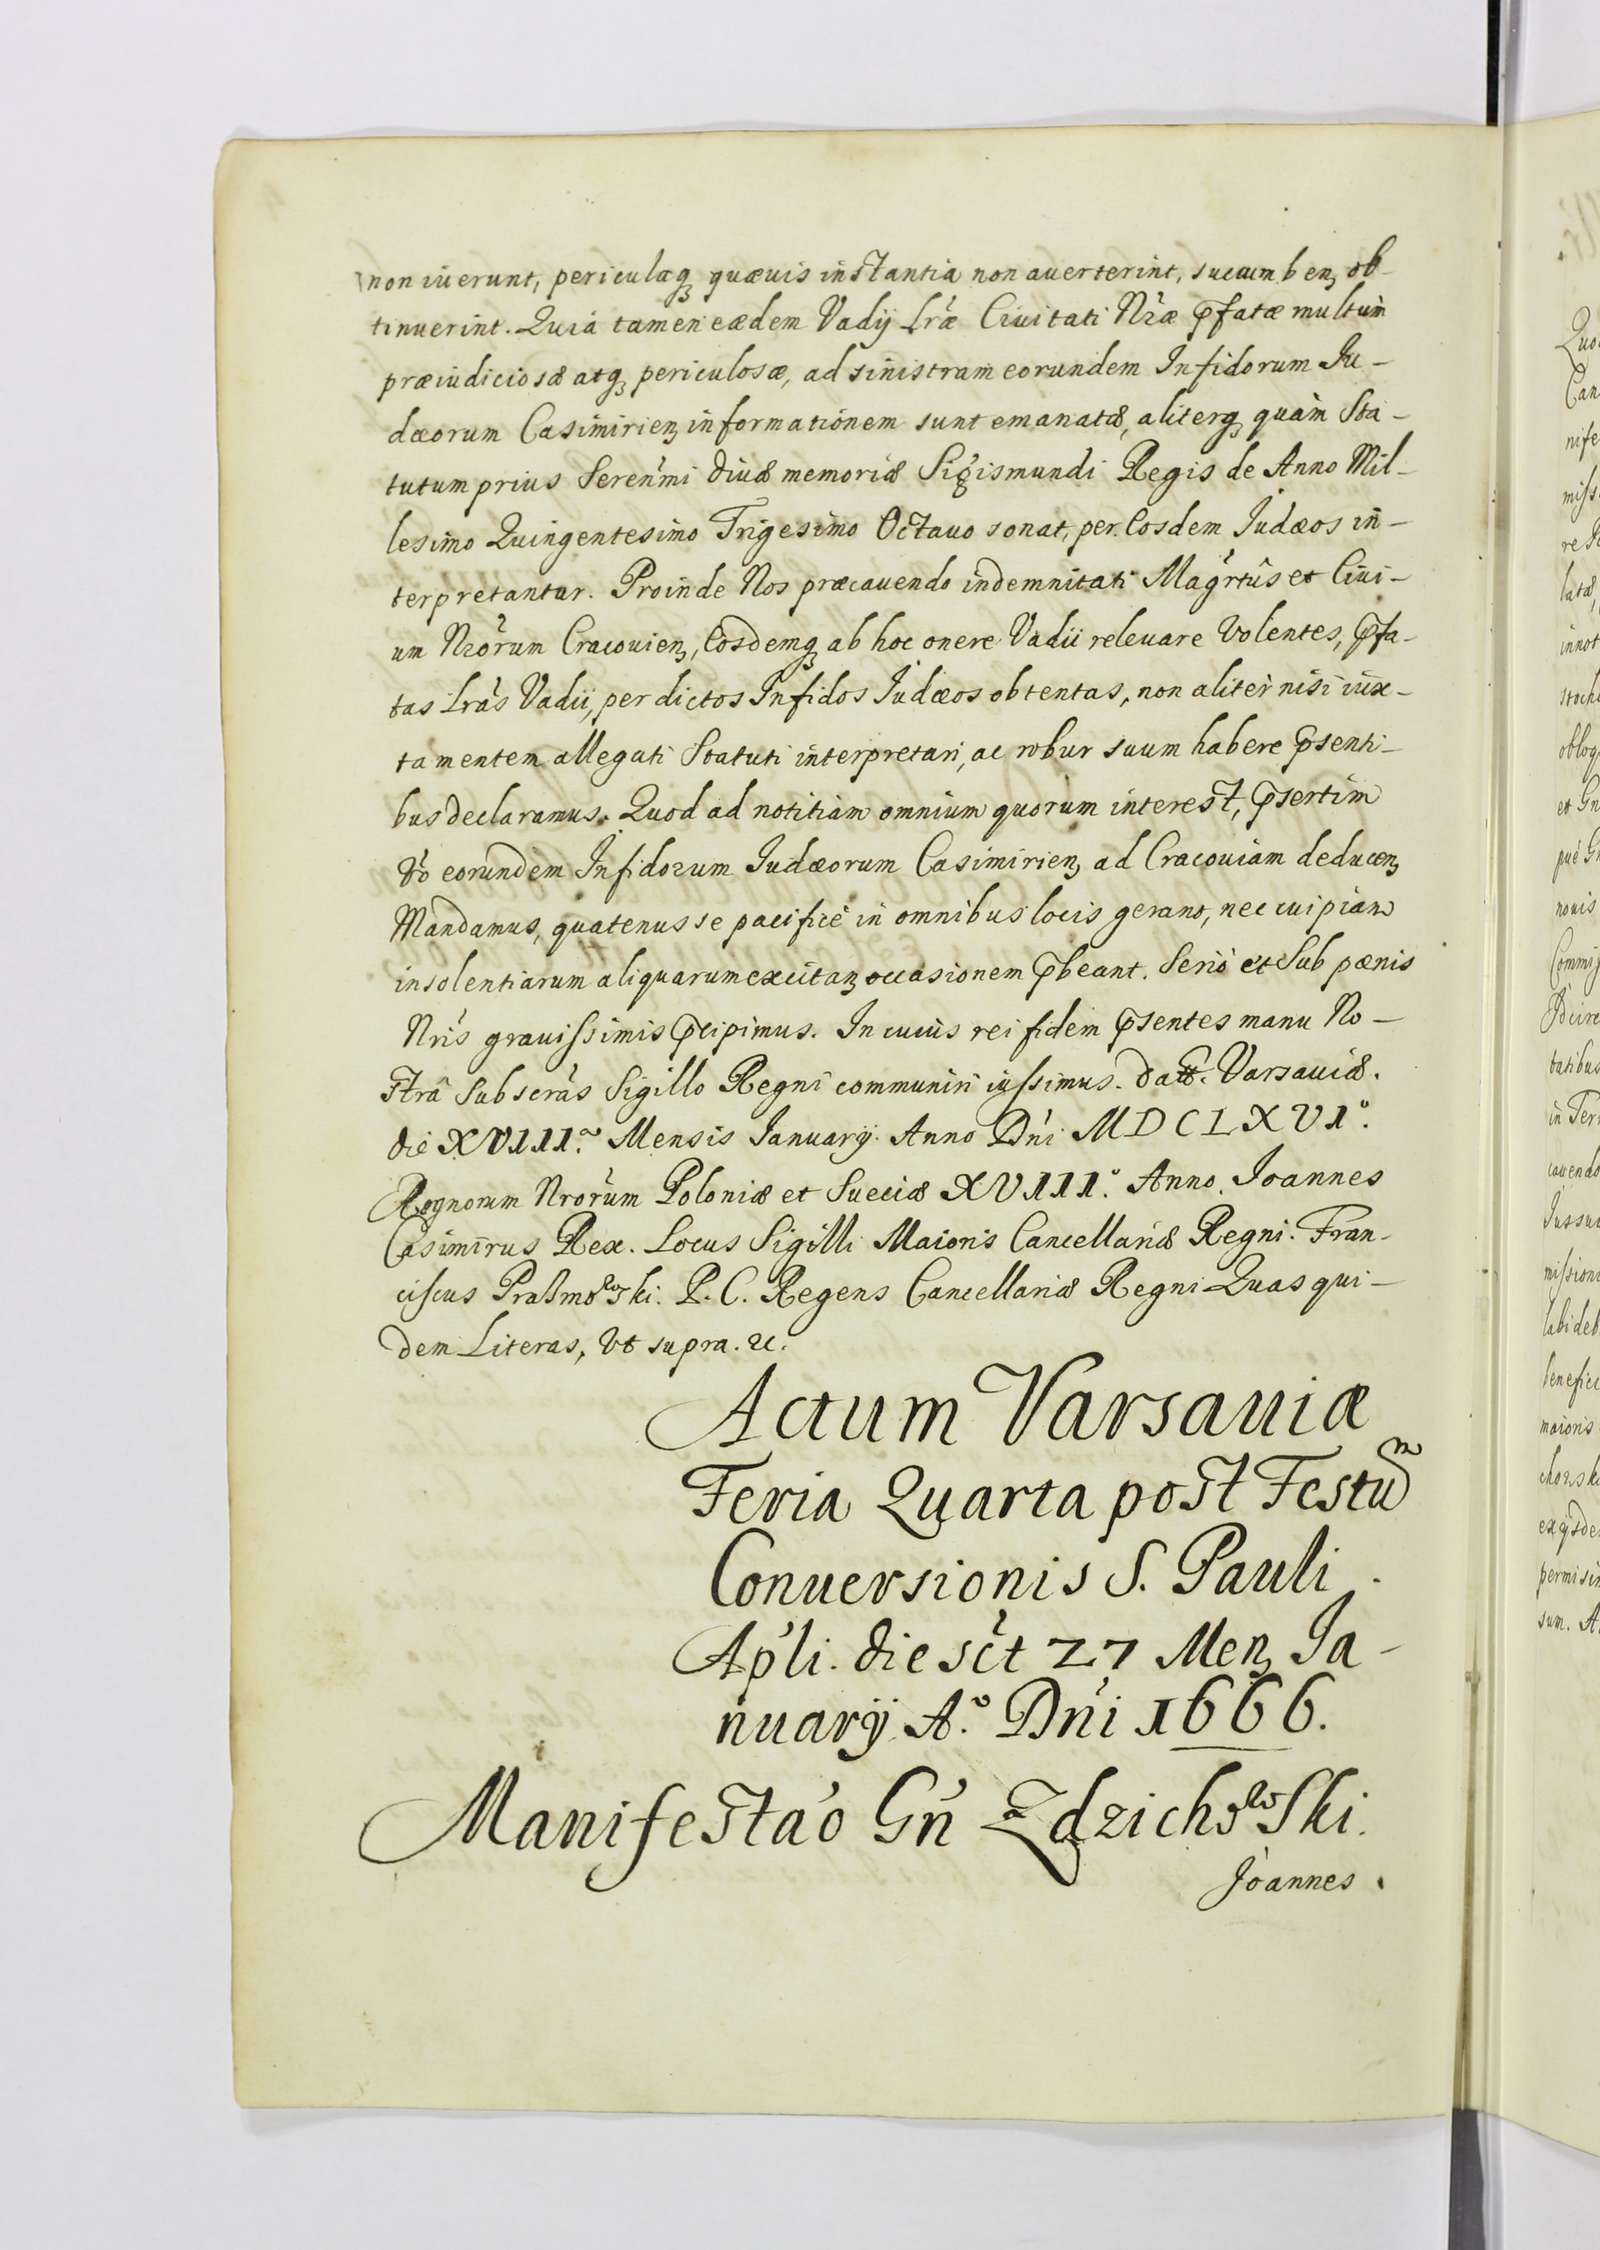 non iuerunt, periculaq₃ quæuis instantia non auerterint, succumben₃ ob-
tinuerint. Quia tamen eædem Vadij Lræ Ciuitati Nræ p̃fatæ multum
præiudiciosæ atq₃ periculosæ, ad sinistram eorundem Infidorum Iu-
dæorum Casimirien₃ informationem sunt emanatæ, aliterq₃ quàm Sta-
tutum prius Seren̄mi diuæ memoriæ Sigismundi Regis de Anno Mil-
lesimo Quingentesimo Trigesimo Octauo sonat, per Eosdem Iudæos in-
terpretantur. Proinde Nos præcauendo indemnitati Magr̃tûs et Ciui-
um Nrõrum Cracouien₃, Eosdemq₃ ab hoc onere Vadii releuare Volentes, p̃fa-
tas Lrãs Vadii, per dictos Infidos Iudæos obtentas, non alitèr nisi iux-
ta mentem allegati Statuti interpretari, ac robur suum habere p̃senti-
bus declaramus. Quod ad notitiam omnium quorum interest, p̃sertim
Vò eorundem Infidorum Iudæorum Casimirien₃ ad Cracouiam deducen₃
Mandamus, quatenus se pacificè in omnibus locis gerant, nec cuipiam
insolentiarum aliquarum excitan₃ occasionem p̃beant. Seriò et Sub pænis
Nrĩs grauissimis p̃cipimus. In cuius rei fidem p̃sentes manu No-
strâ Subscrãs Sigillo Regni communiri iussimus. Datt. Varsauiæ.
die XVIII.ᵃ Mensis Ianuarij. Anno Dñi MDCLXVIº.
Regnorum Nrõrum Poloniæ et Sueciæ XVIIIº. Anno. Ioannes
Casimirus Rex. Locus Sigilli Maioris Cancellariæ Regni. Fran-
ciscus Praßmowski. P. C. Regens Cancellariæ Regni. Quas qui-
dem Literas, Vt supra. &c.
Actum Varsauiæ
Feria Quarta post Festuᵐ
Conuersionis S. Pauli
Apl̃i. die sc̃t 27 Men₃ Ia-
nuarij A.º Dñi 1666.
Manifestaõ Gñ Zdzichowski.
Ioannes